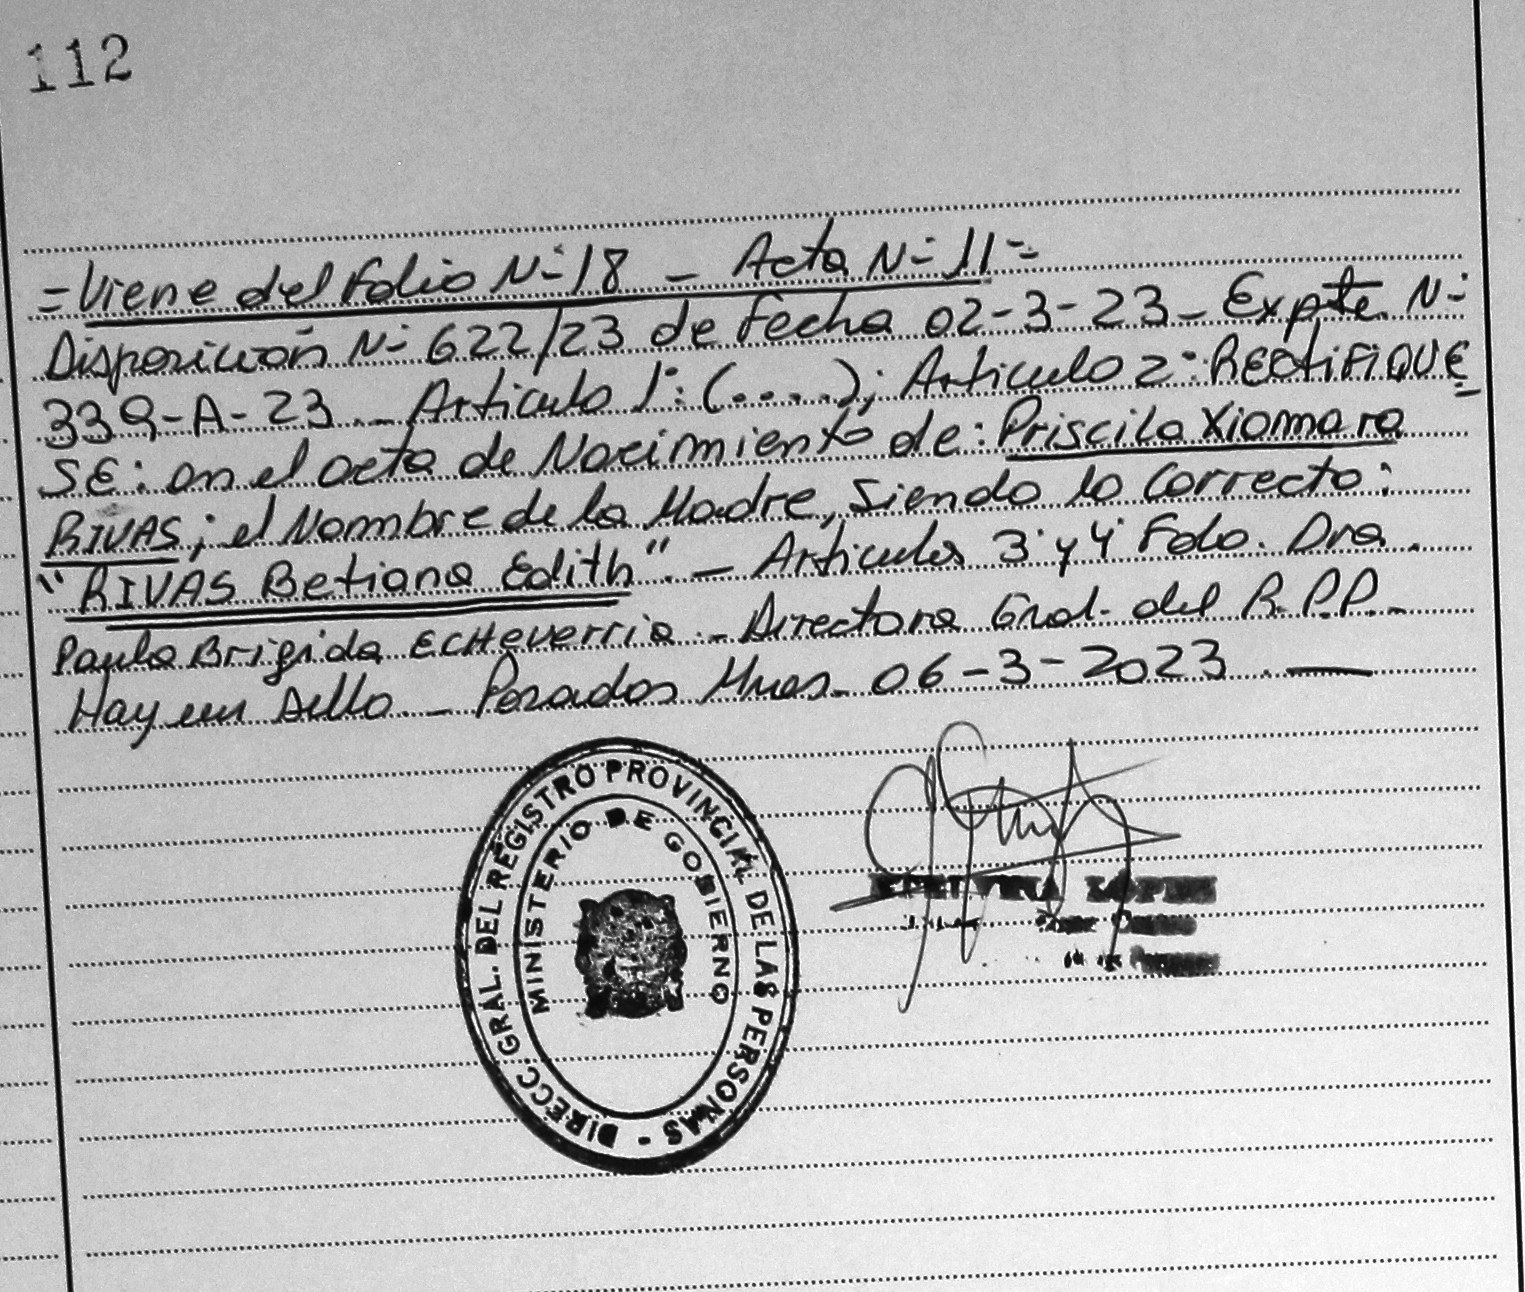 112
=Viene del Folio Nº 18 - Acta Nº 11=
Disposición Nº 622/23 de Fecha 02-3-23- Expte. Nº
339-A-23.- Artículo 1º: (....); Artículo 2º: RECTIFIQUE
SE: en el acta de Nacimiento de: Priscila Xiomara
RIVAS; el Nombre de la Madre, siendo lo Correcto:
"RIVAS Betiana Edith".- Artículos 3º y 4º Fdo. Dra.
Paula Brigida ECHEVERRIA.- Directora Gral. del R.P.P.-
Hay un sello.- Posadas Mnes. 06-3-2023.—
DIRECC. GRAL. DEL REGISTRO PROVINCIAL DE LAS PERSONAS -
MINISTERIO DE GOBIERNO